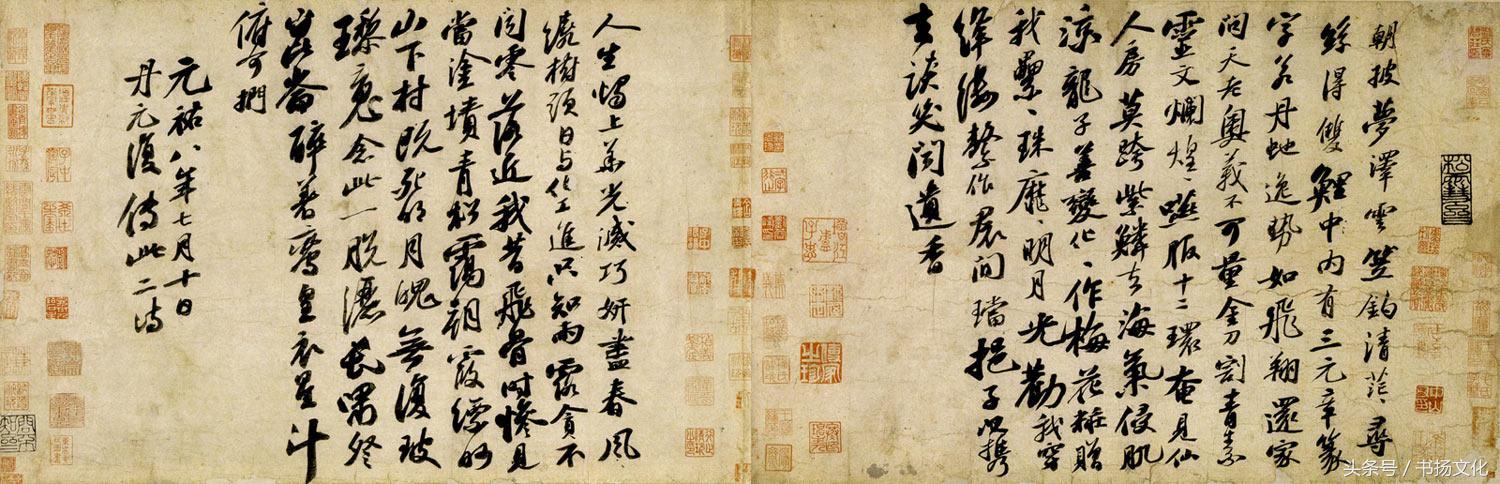 朝披夢澤雲笠釣清茫、尋
絲得雙鯉中內有三元章篆
字若丹虵逸勢如飛翔還家
問天老奧義不可量金刀割青素
靈文爛煌、嚥服十二環奄見仙
人房莫跨紫鱗去海氣侵肌
涼龍子善變化、作梅花糚贈
我纍、珠靡、明月光勸我穿
絳縷繫作裙間璫挹子以攜
去談笑聞遺香
人生燭上華光滅巧妍盡春風
繞樹頭日与化工進只知雨露貪不
聞零落近我昔飛骨時慘見
當塗墳青松靄朝霞縹眇
山下村既死明月魄無復玻
瓈魂念此一脫灑長嘯祭
崑崙醉著鸞皇衣星斗
俯可捫
元祐八年七月十日
丹元復傳此二詩
头条号 / 书扬文化